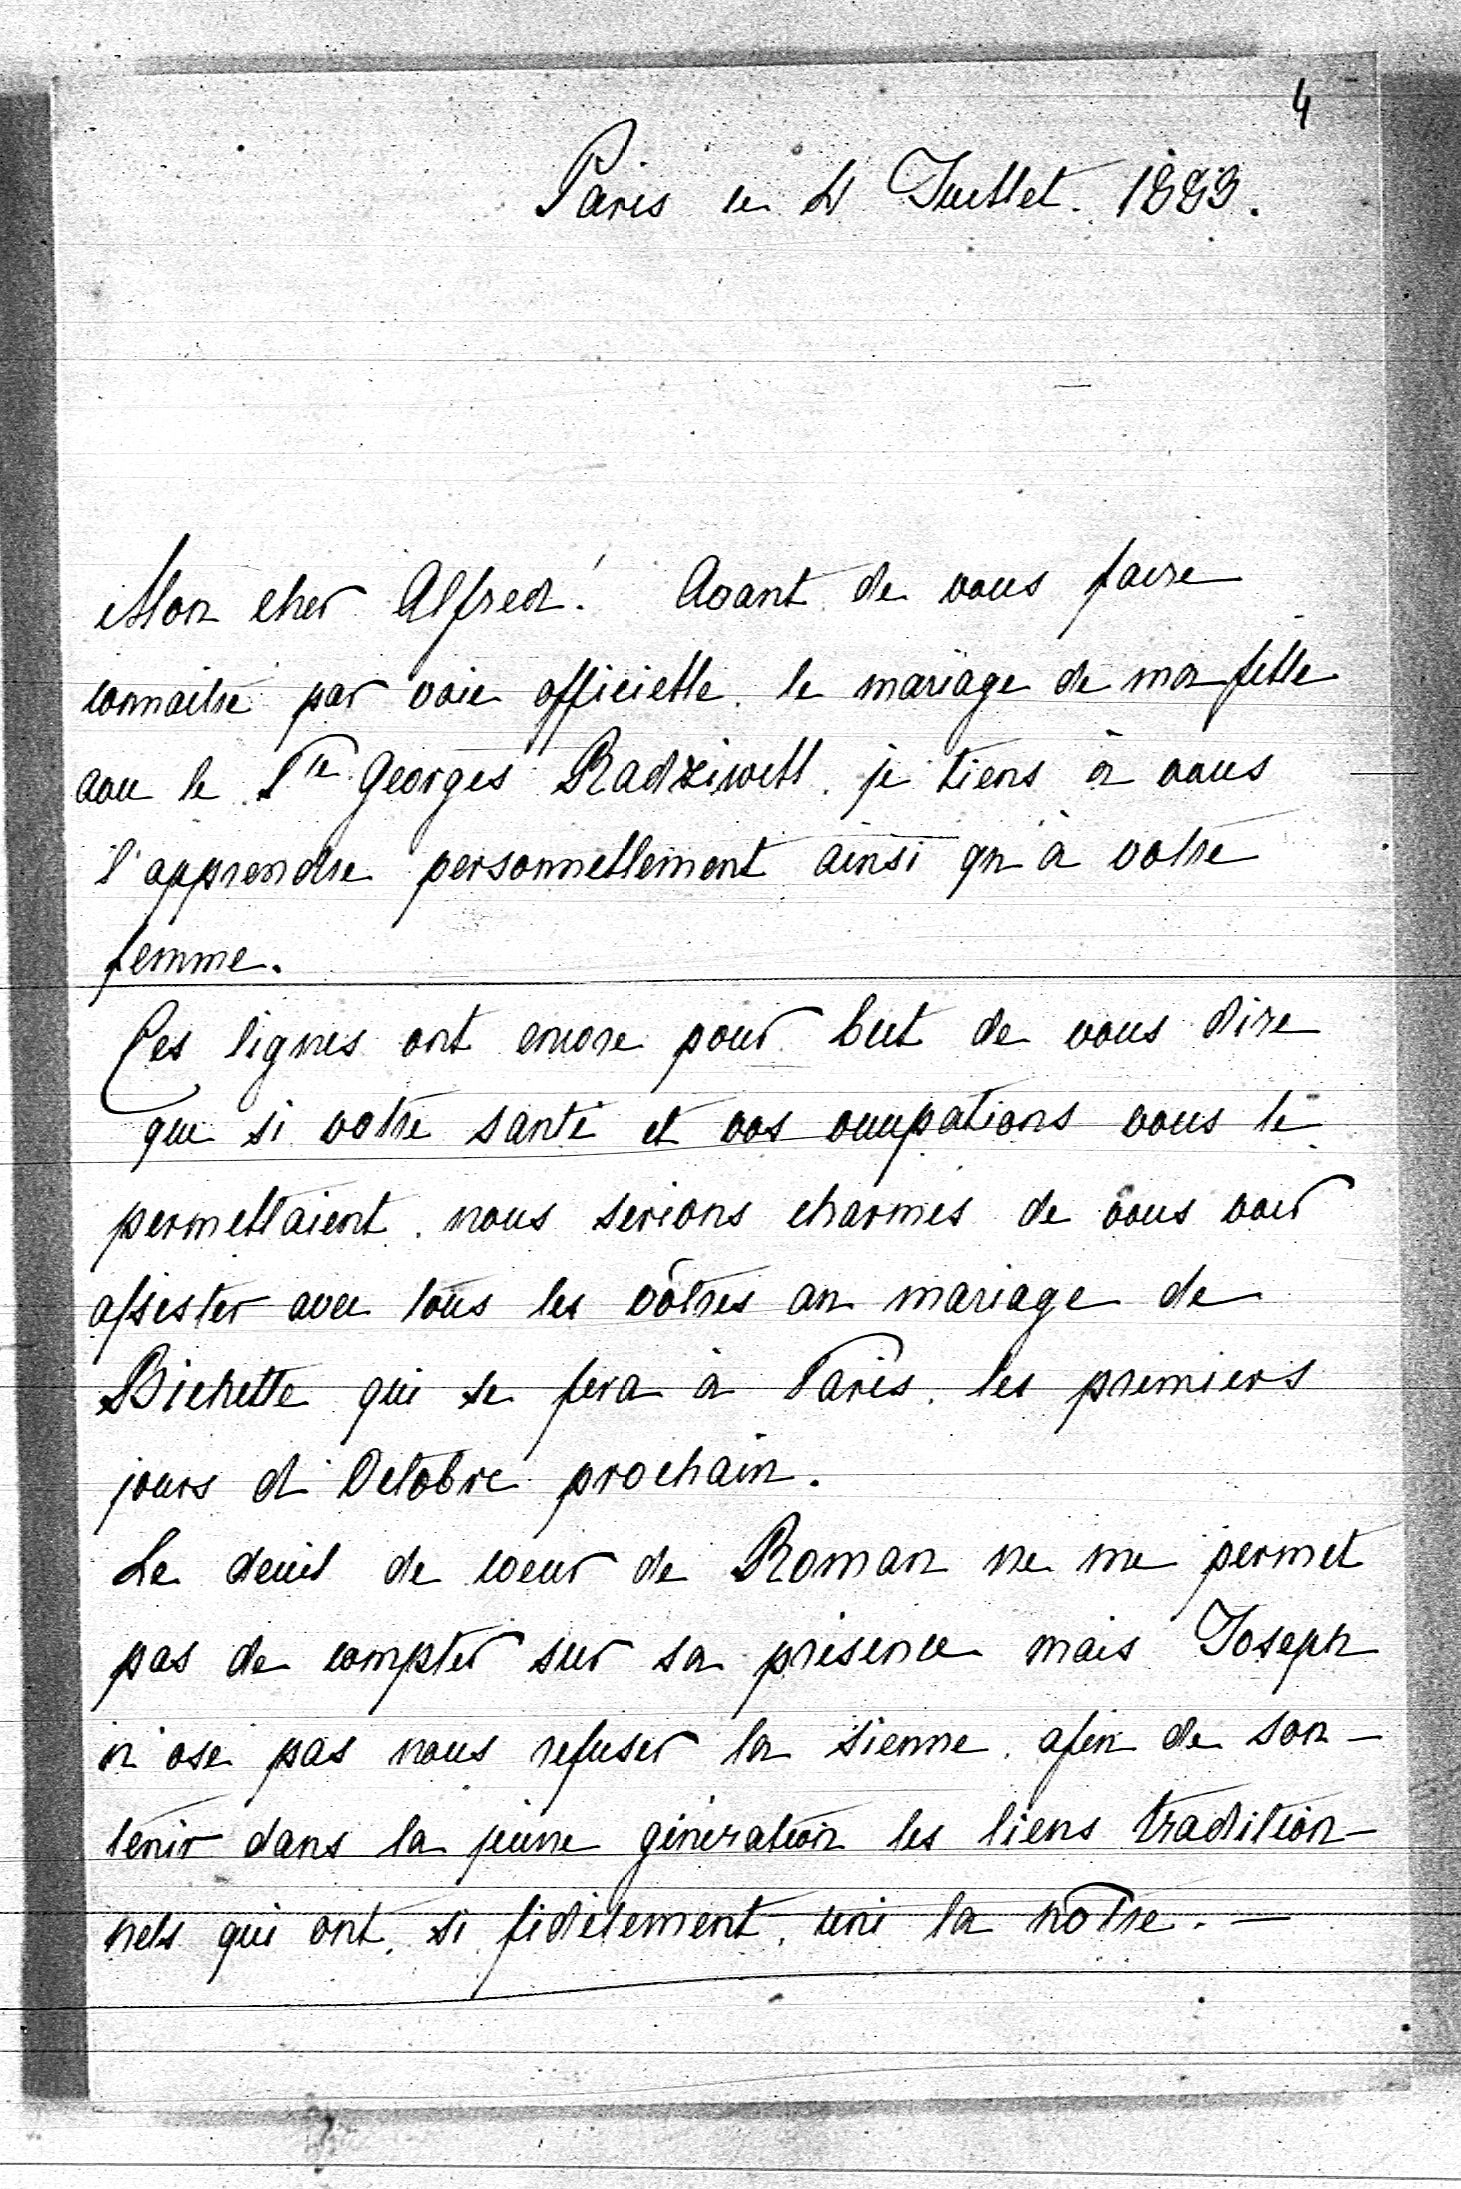 4
Paris le 4 Juillet. 1883.
Mon cher Alfred! Avant de vous faire
connaitre par voie officielle. le mariage de ma fille
avec le Pce Georges Radziwill. je tiens à vous
l'apprendre personnellement ainsi qu'à votre
femme.
Ces lignes ont encore pour but de vous dire
que si votre santé et vos occupations vous le
permettaient. nous serions charmés de vous voir
assister avec tous les vôtres au mariage de
Bichette qui se fera à Paris. les premiers
jours d'Octobre prochain.
Le deuil de coeur de Roman ne me permet
pas de compter sur sa présence mais Joseph
n'ose pas nous refuser la sienne. afin de sou-
tenir dans la jeune génération les liens tradition-
nels qui ont. si fidèlement. uni la nôtre. —